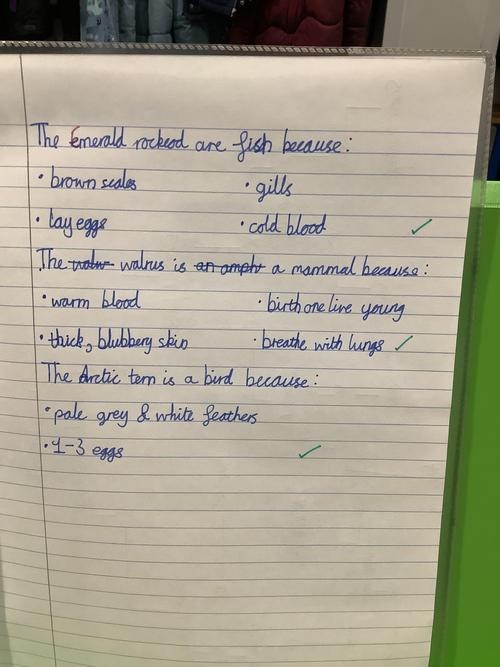 The Emerald rockcod are fish because:
• brown scales • gills
• lay eggs • cold blood ✓
The walw walrus is an amph a mammal because:
• warm blood • birth one live young
• thick, blubbery skin • breathe with lungs ✓
The Arctic tern is a bird because:
• pale grey & white feathers
• 1-3 eggs ✓